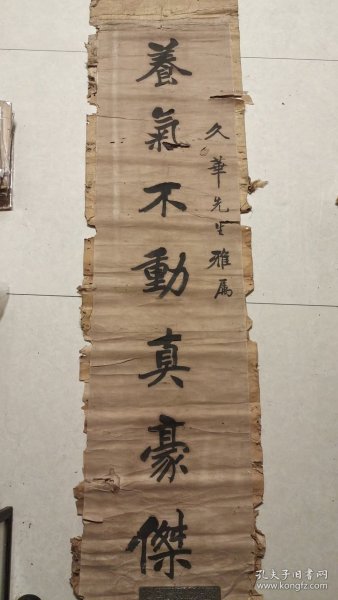 久華先生雅屬
養氣不動真豪傑
孔夫子旧书网
www.kongfz.com